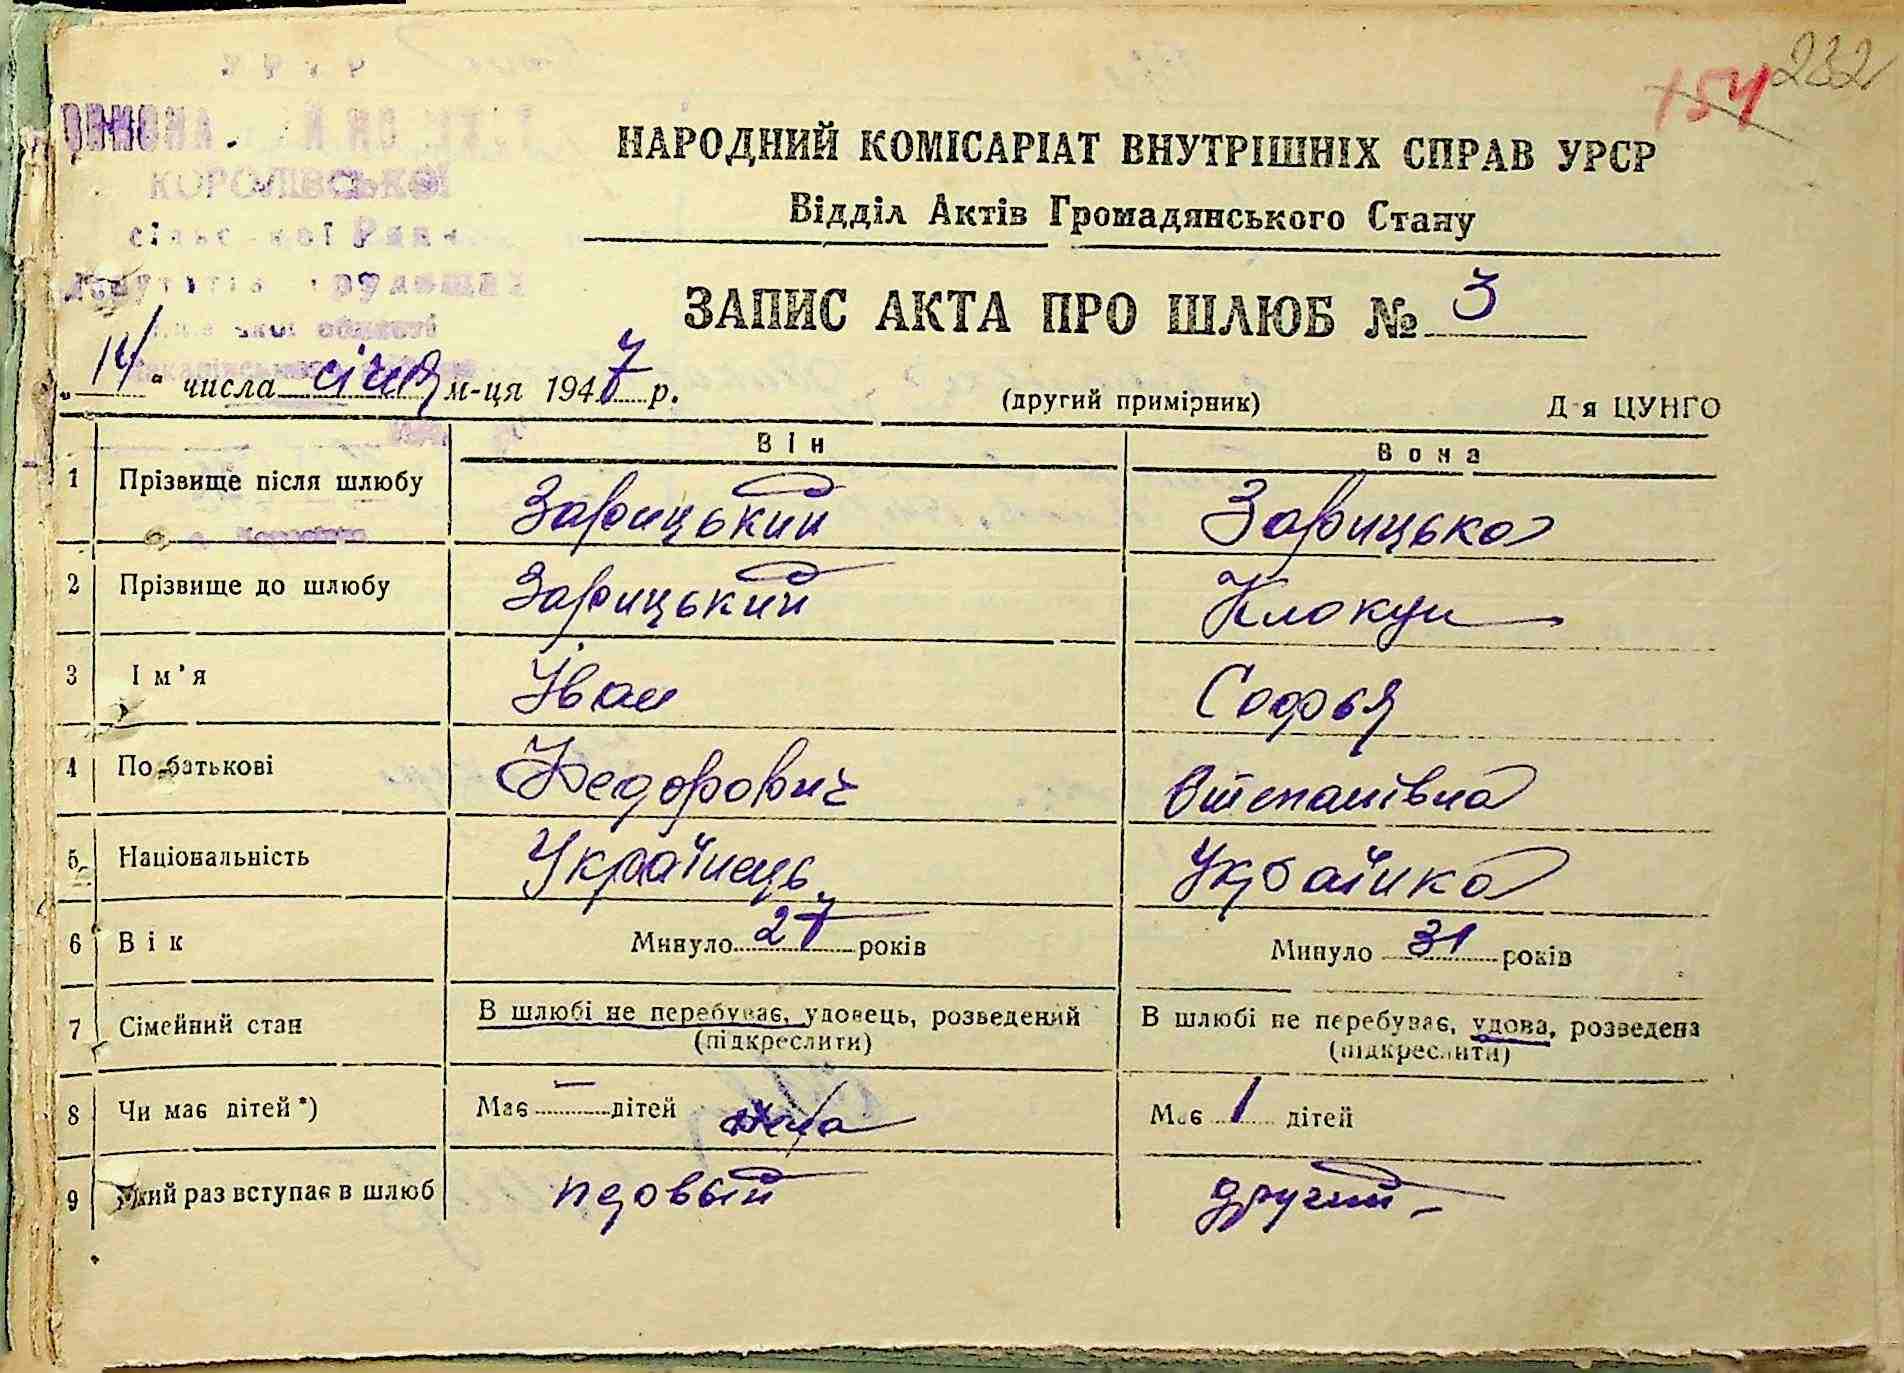 232
154
КОРОЛІВСЬКОЇ
НАРОДНИЙ КОМІСАРІАТ ВНУТРІШНІХ СПРАВ УРСР
Відділ Актів Громадянського Стану
ЗАПИС АКТА ПРО ШЛЮБ № 3
„14“ числа січня м-ця 1947 р.
(другий примірник) Д-я ЦУНГО
Він Вона
1 Прізвище після шлюбу Зарицький Зарицька
2 Прізвище до шлюбу Зарицький Клокун
3 Ім'я Іван Софья
4 По батькові Федорович Степанівна
5 Національність Українець Українка
6 Вік Минуло 27 років Минуло 31 років
7 Сімейний стан В шлюбі не перебуває, удовець, розведений (підкреслити) В шлюбі не перебуває, удова, розведена (підкреслити)
8 Чи має дітей *) Має — дітей Має 1 дітей
9 Який раз вступає в шлюб первый другий